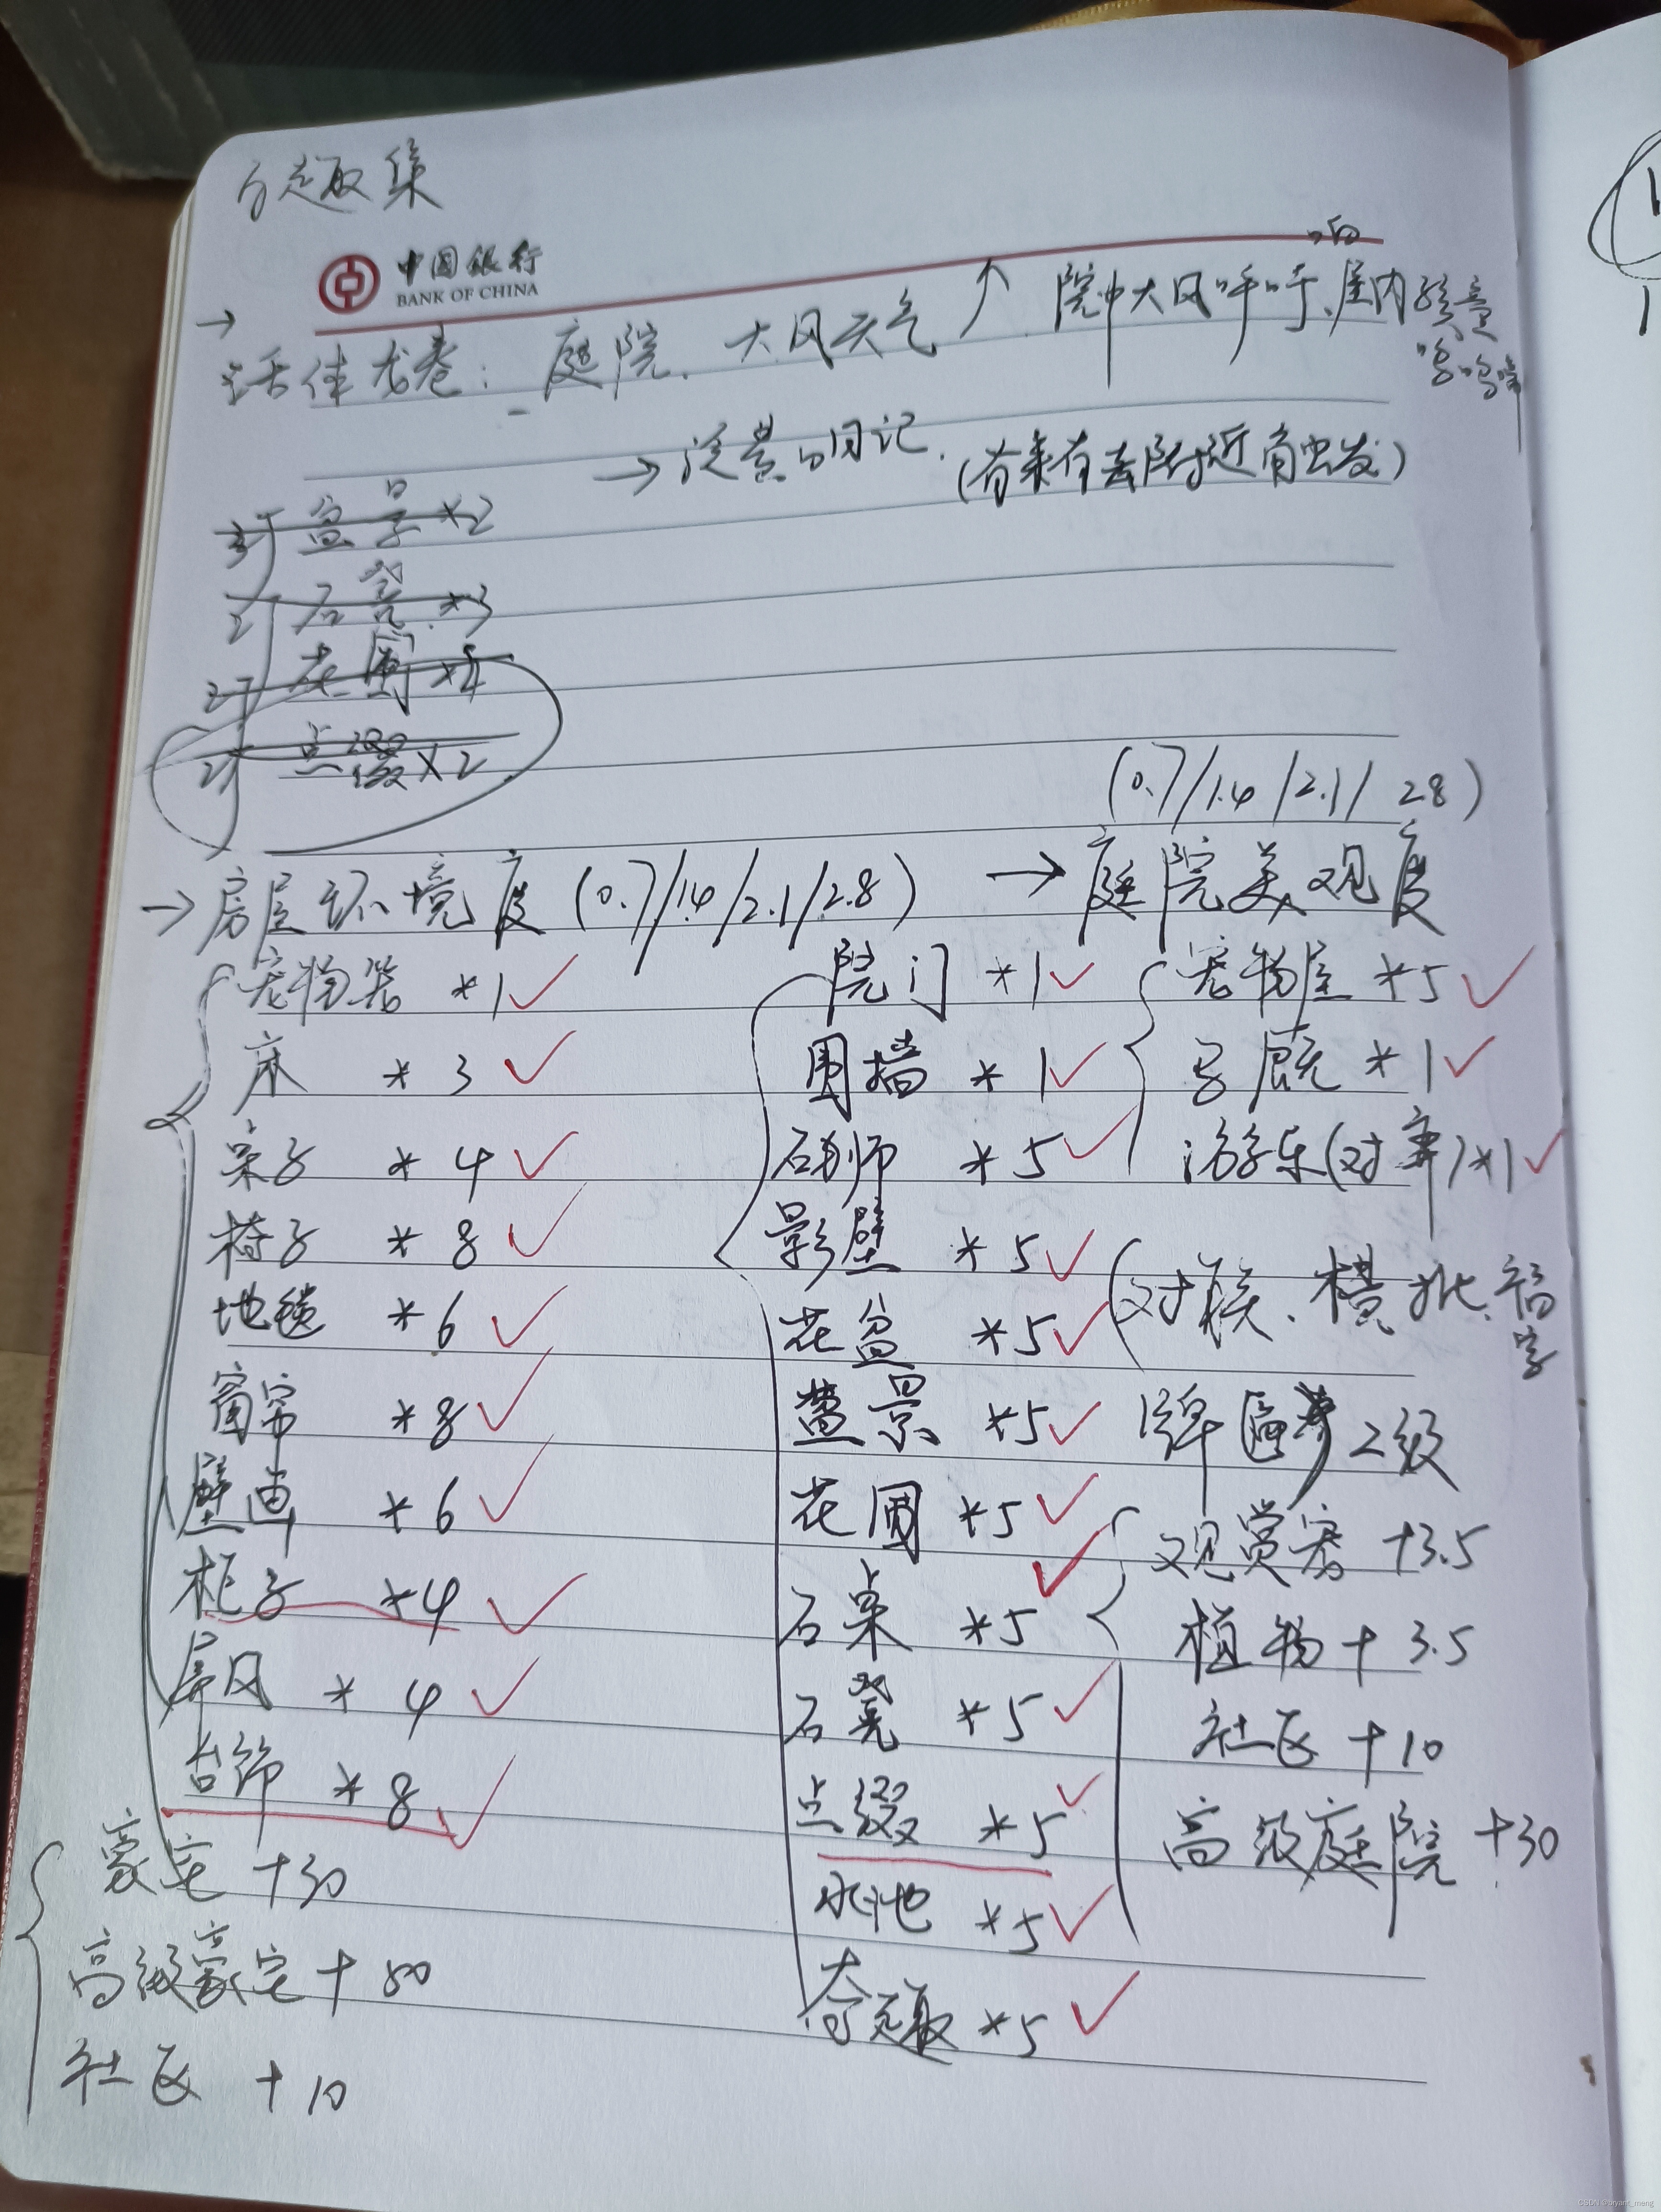 趣集
中国银行
BANK OF CHINA
→
庭院、大风天气 ↑ 院中大风呼呼响、屋内
→ 日记. (有来有去附近有出发)
盆景 *2
石凳 *3
花圃
点缀 X2
(0.7/1.4/2.1/2.8)
→ 房屋环境度 (0.7/1.4/2.1/2.8) → 庭院美观度
宠物窝 *1 ✓
床 * 3 ✓
桌子 * 4 ✓
椅子 * 8 ✓
地毯 *6 ✓
窗帘 *8 ✓
壁画 *6 ✓
柜子 *4 ✓
屏风 * 4 ✓
吊饰 * 8 ✓
豪宅 +30
高级豪宅 + 80
社区 + 10
院门 *1 ✓
围墙 * 1 ✓
石狮 * 5 ✓
影壁 * 5 ✓
花盆 *5 ✓
盆景 *5 ✓
花圃 *5 ✓
石桌 *5 ✓
石凳 *5 ✓
点缀 *5 ✓
水池 *5 ✓
趣 *5 ✓
宠物屋 *5 ✓
马厩 *1 ✓
游乐(对牵)*1 ✓
对联、横批、福字
牌匾 2级
观赏宠 +3.5
植物 + 3.5
社区 +10
高级庭院 +30
CSDN @bryant_meng